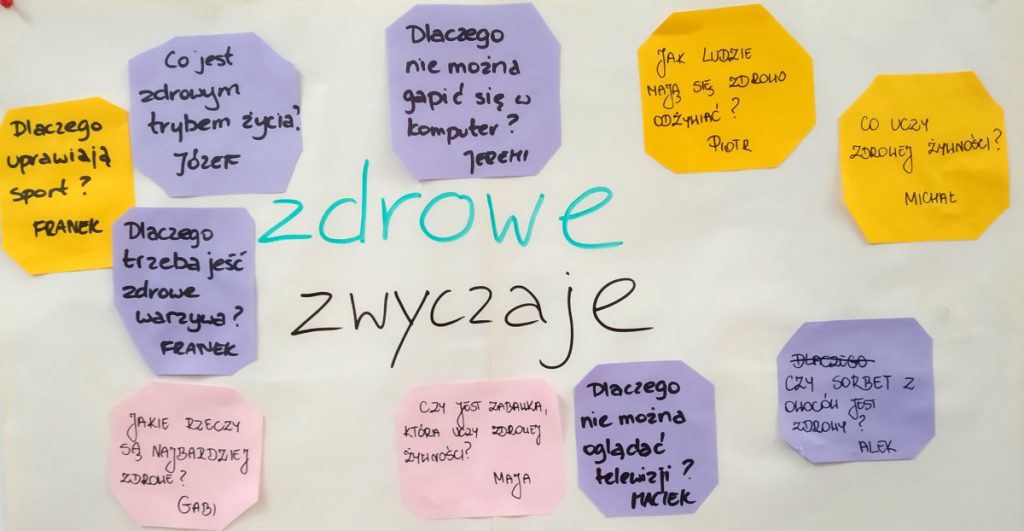 Co jest
zdrowym
trybem życia?
JÓZEF
Dlaczego
nie można
gapić się w
komputer?
JEREMI
JAK LUDZIE
MAJĄ SIĘ ZDROWO
ODŻYWIAĆ?
PIOTR
CO UCZY
ZDROWEJ ŻYWNOŚCI?
MICHAŁ
Dlaczego
uprawiają
sport?
FRANEK
zdrowe
zwyczaje
Dlaczego
trzeba jeść
zdrowe
warzywa?
FRANEK
JAKIE RZECZY
SĄ NAJBARDZIEJ
ZDROWE?
GABI
CZY JEST ZABAWKA,
KTÓRA UCZY ZDROWEJ
ŻYWNOŚCI?
MAJA
Dlaczego
nie można
oglądać
telewizji?
MACIEK
DLACZEGO
CZY SORBET Z
OWOCÓW JEST
ZDROWY?
ALEK